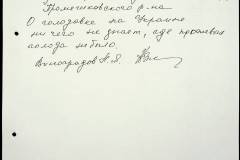 Гремечковского р-на
О голодовке на Украине
ни чего не знает, где проживал
голода не было.
Виноградов Н. Я.